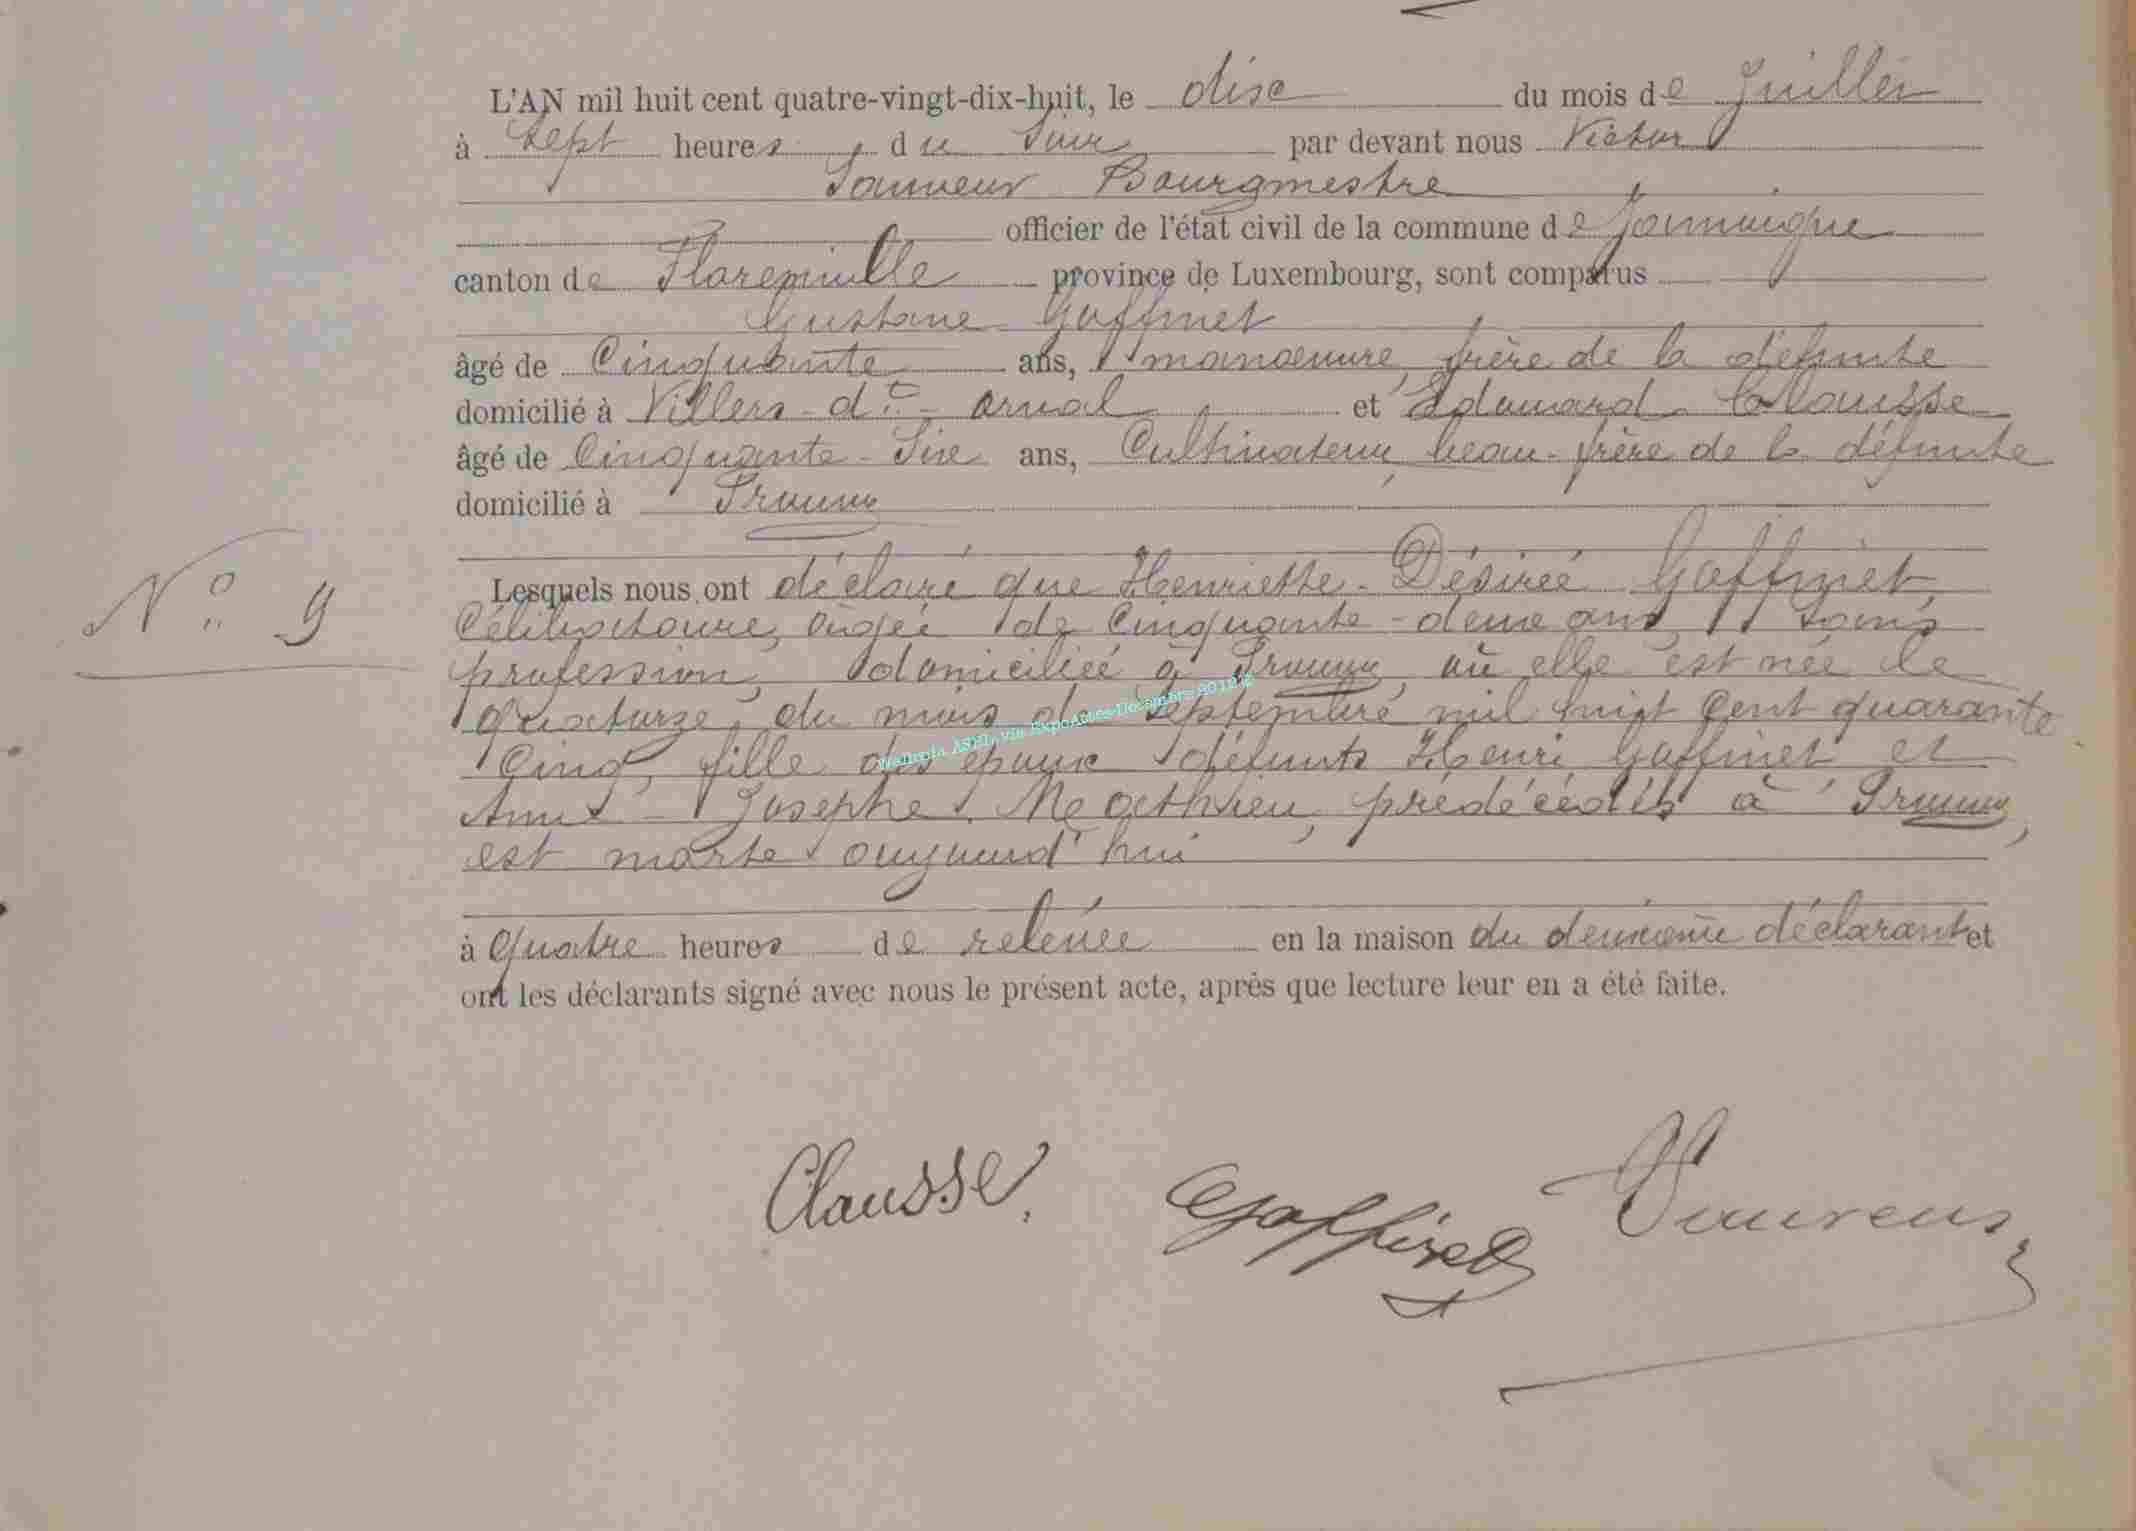 L'AN mil huit cent quatre-vingt-dix-huit, le dix du mois de Juillet
à Sept heures du Soir par devant nous Victor
Sauveur Bourgmestre
officier de l'état civil de la commune de Jamoigne
canton de Florenville province de Luxembourg, sont comparus
Gustave Goffinet
âgé de Cinquante ans, manœuvre, frère de la défunte
domicilié à Villers-dt-orval et Edouard Clausse
âgé de Cinquante-Six ans, Cultivateur, beau-frère de la défunte
domicilié à Prouvy
N° 9
Lesquels nous ont déclaré que Henriette-Désirée Goffinet,
Célibataire, âgée de Cinquante-deux ans, sans
profession, domiciliée à Prouvy, où elle est née le
quatorze, du mois de septembre mil huit Cent quarante
Cinq, fille des époux défunts Henri Goffinet et
Anne-Josèphe Mathieu, prédécédés à Prouvy,
est morte aujourd'hui
à quatre heures de relevée en la maison du deuxième déclarant et
ont les déclarants signé avec nous le présent acte, après que lecture leur en a été faite.
Clausse. Goffinet VSauveur